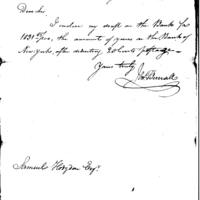 Dear Sir
I enclose my draft on the Bank for
the amount of yours on the Bank of
New York, after deducting 20 cents postage.
Yours truly
Samuel Hodgdon Esqr.